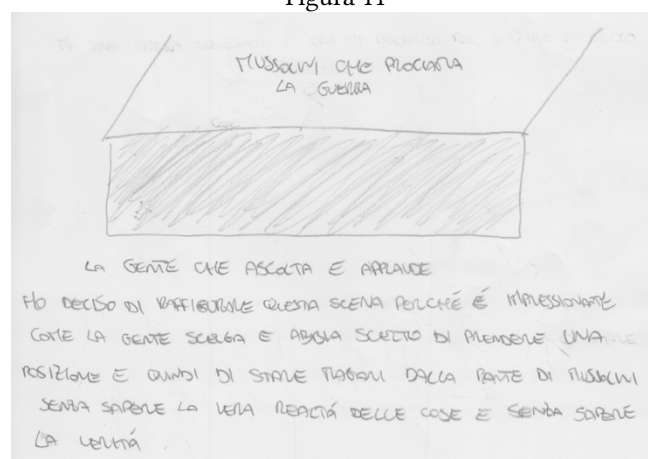 Figura 11
MUSSOLINI CHE PROCLAMA
LA GUERRA
LA GENTE CHE ASCOLTA E APPLAUDE
HO DECISO DI RAFFIGURARE QUESTA SCENA PERCHÉ É IMPRESSIONANTE
COME LA GENTE SCELGA E ABBIA SCELTO DI PRENDERE UNA
POSIZIONE E QUINDI DI STARE MAGARI DALLA PARTE DI MUSSOLINI
SENZA SAPERE LA VERA REALTÁ DELLE COSE E SENZA SAPERE
LA VERITÁ